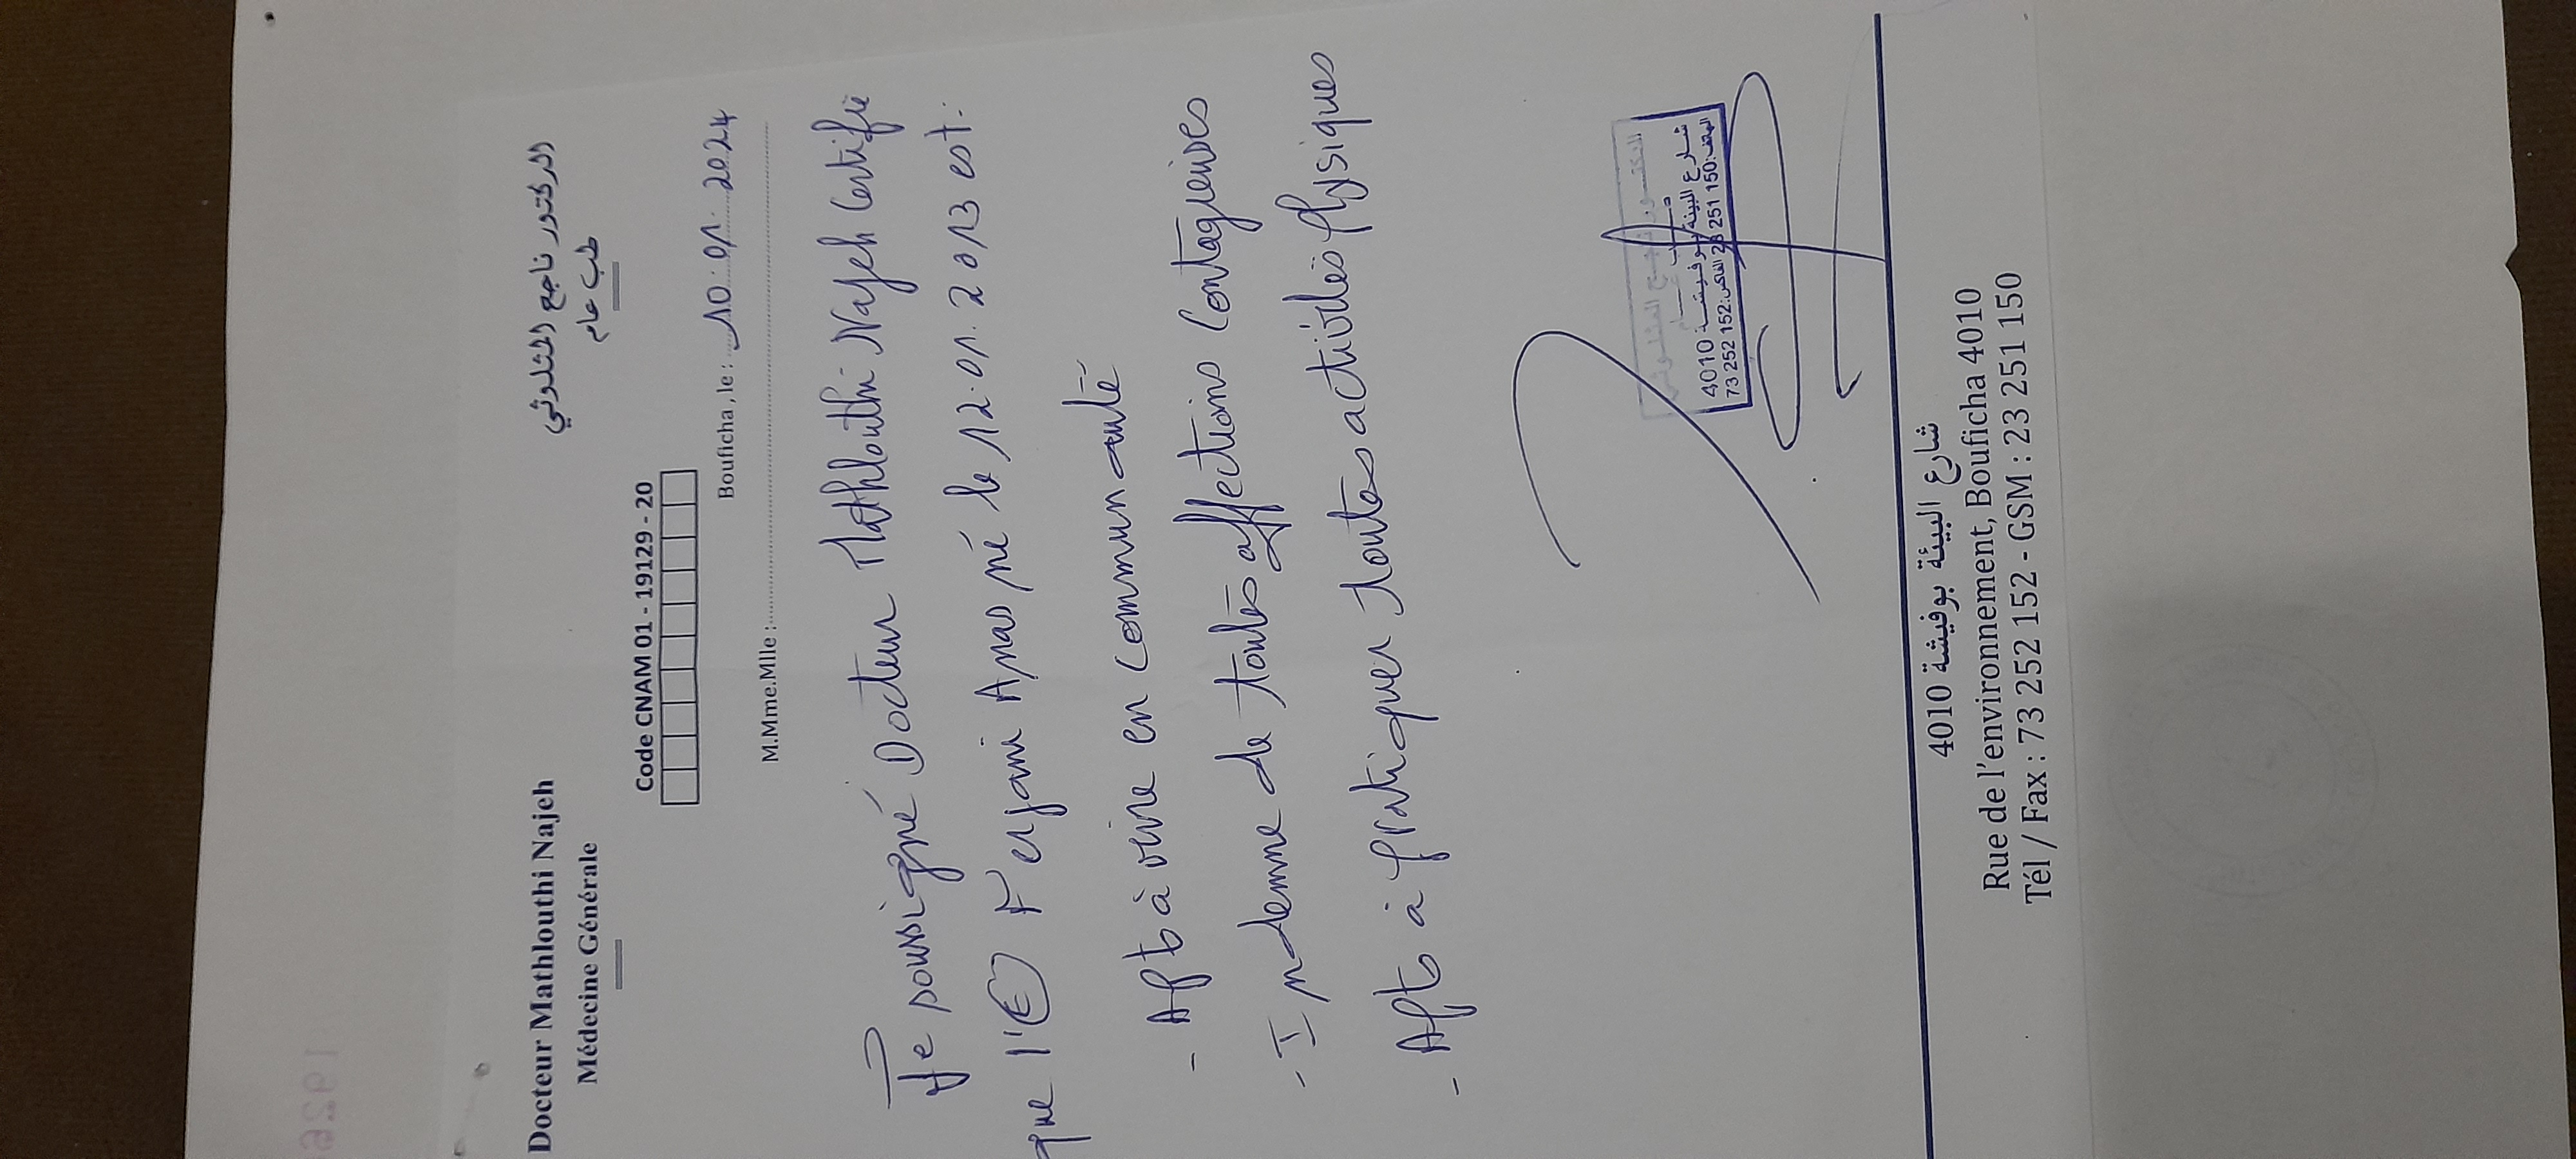 Docteur Mathlouthi Najeh
Médecine Générale
الدكتور ناجح المثلوثي
طب عام
Code CNAM 01 - 19129 - 20
Bouficha , le : 10.01.2024
M.Mme.Mlle :
Je soussigné Docteur Mathlouthi Najeh Certifie
que l'E Ferjani Anas né le 12.01.2013 est:
- Apte à vivre en Communauté
- Indemne de toutes affections Contagieuses
- Apte à pratiquer toutes activités physiques
الدكتور ناجح المثلوثي
طب عام
شارع البيئة بوفيشة 4010
الهاتف:150 251 23 الفاكس:152 252 73
شارع البيئة بوفيشة 4010
Rue de l'environnement, Bouficha 4010
Tél / Fax : 73 252 152 - GSM : 23 251 150